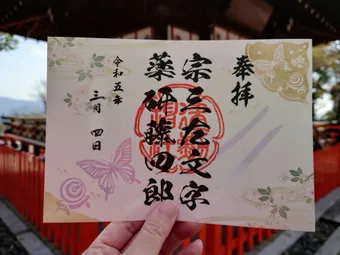 奉拝
宗三左文字
薬研藤四郎
令和五年
三月四日